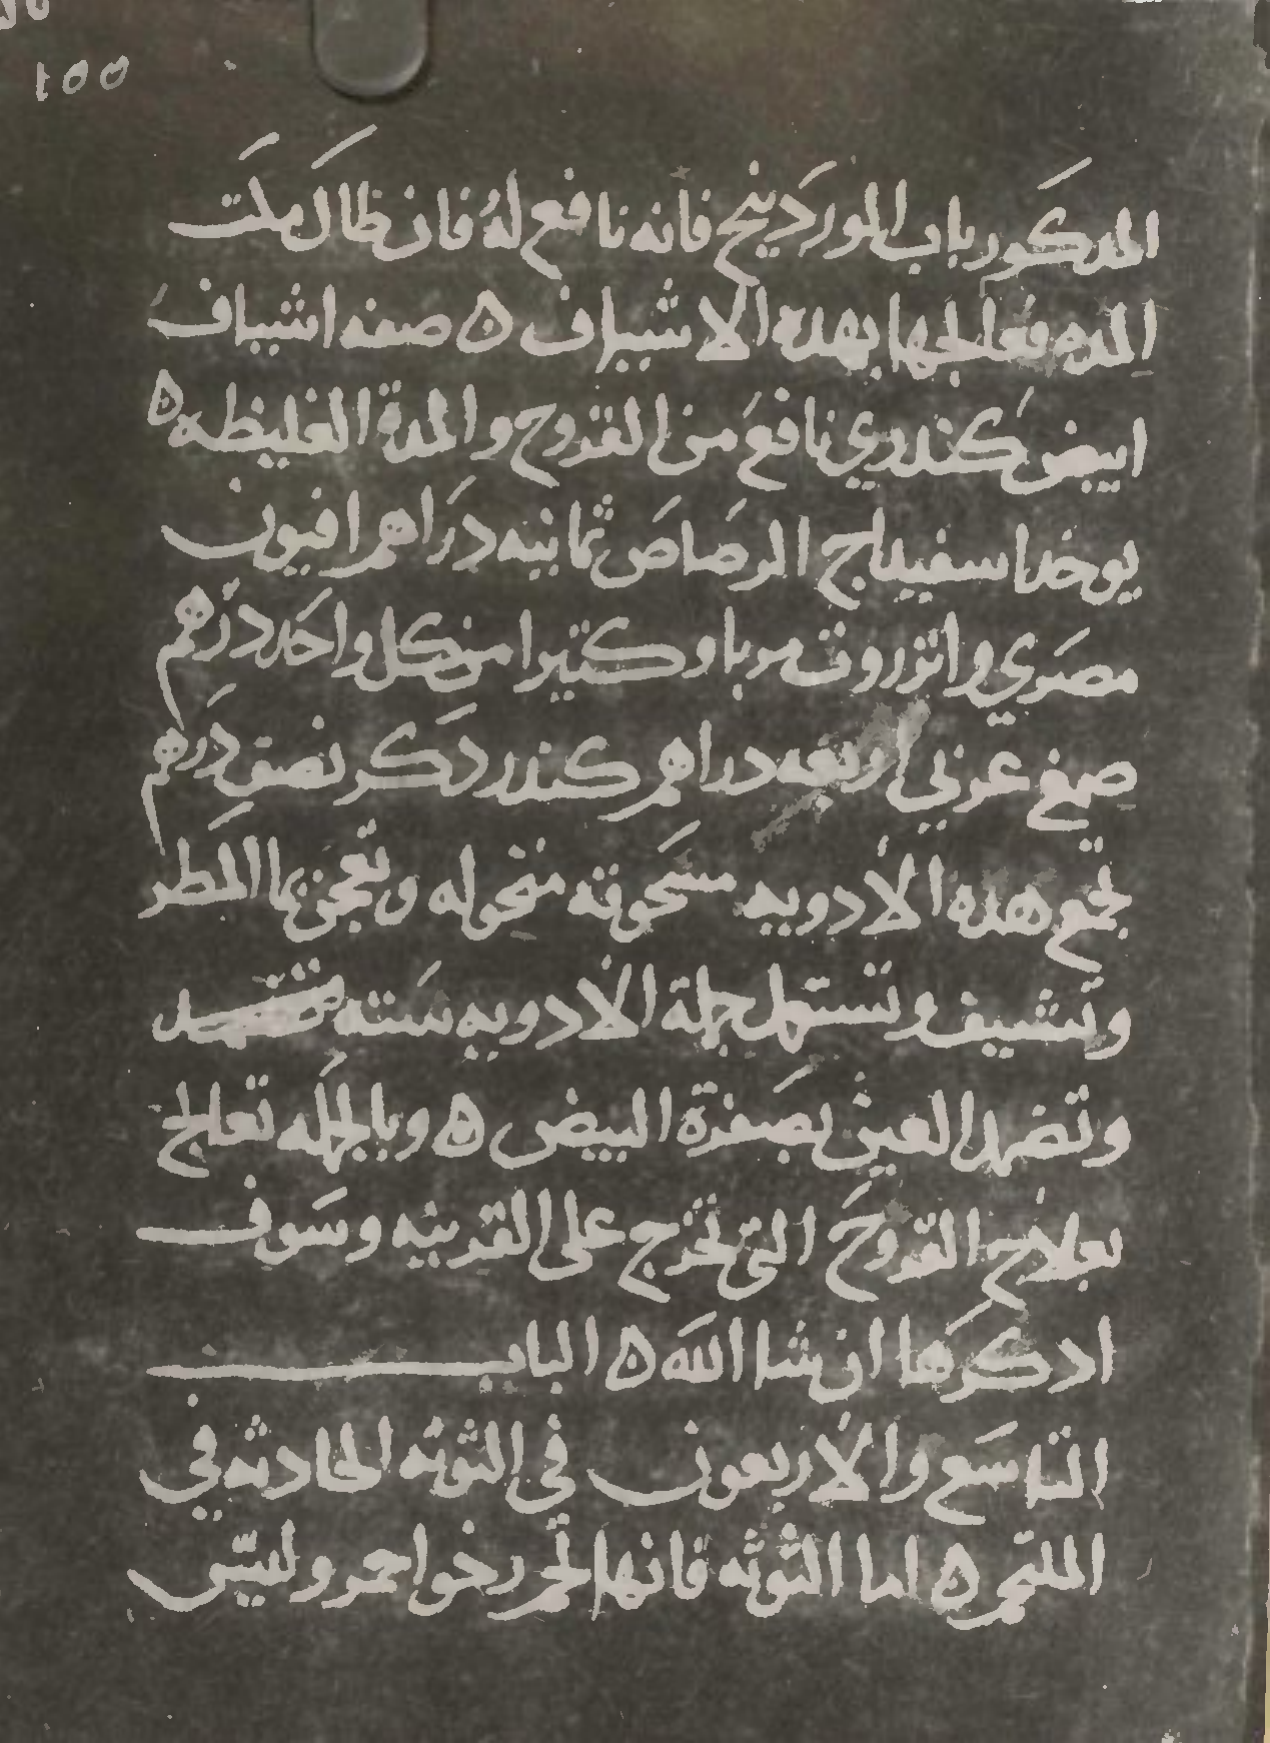 ١٥٥
المدكور باب الوردينج فانه نافع له فان طال مكث
المده فعالجها بهده الاشياف ه صفه اشياف
ابيض كندري نافع من القروح والمدة الغليظه ه
يوخد اسفيداج الرصاص ثمانيه دراهم افيون
مصري وانزروت مربا وكتيرا من كل واحد درهم
صمغ عربي اربعه دراهم كندر دكر نصف درهم
تجمع هده الادويه مسحوقه منخوله وتعجن بما المطر
وتشيف وتستعمل جملة الادويه سته
وتضمد العين بصفرة البيض ه وبالجمله تعالج
بعلاج القروح التي تخرج على القرنيه وسوف
ادكرها ان شا الله ه الباب
التاسع والاربعون في التوته الحادثه في
الملتحم ه اما التوته فانها لحم رخو احمر وليس